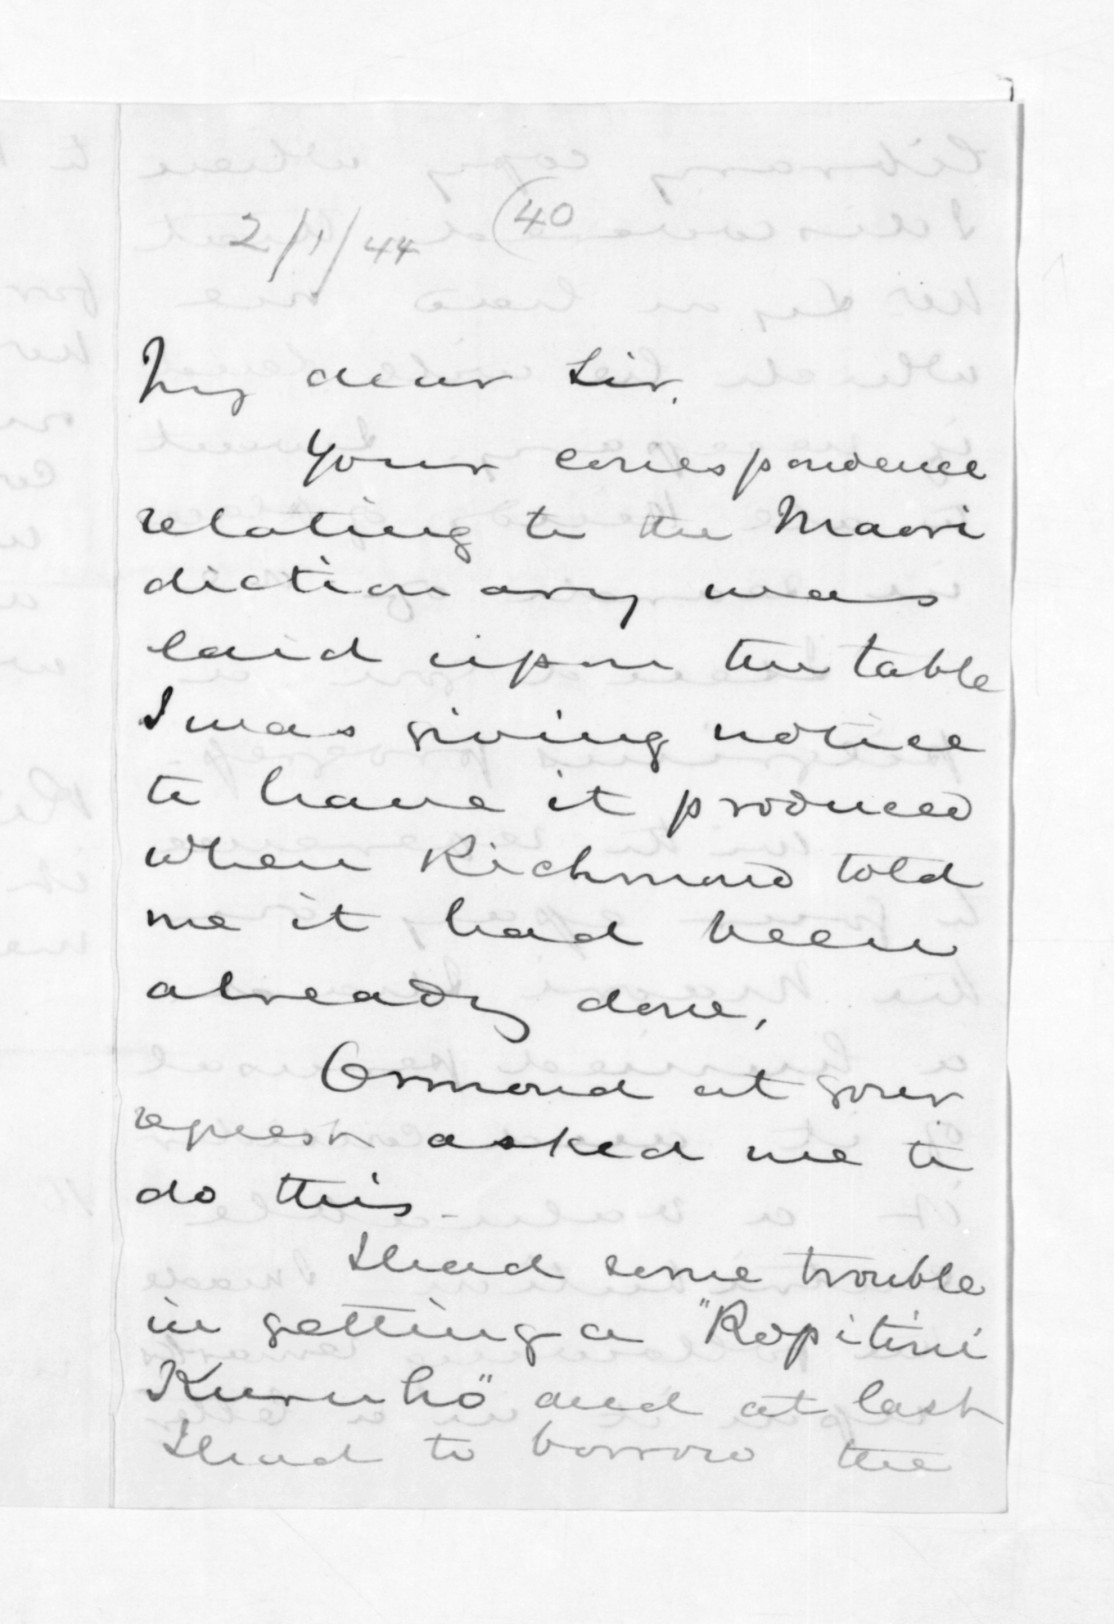 2/1/44 (40
My dear Sir.
Your correspondence
relating to the Maori
dictionary was
laid upon the table
I was giving notice
to have it produced
when Richmond told
me it had been
already done,
Ormond at your
request asked me to
do this.
I had some trouble
in getting a "Ropitini
Kuruho" and at last
I had to borrow the